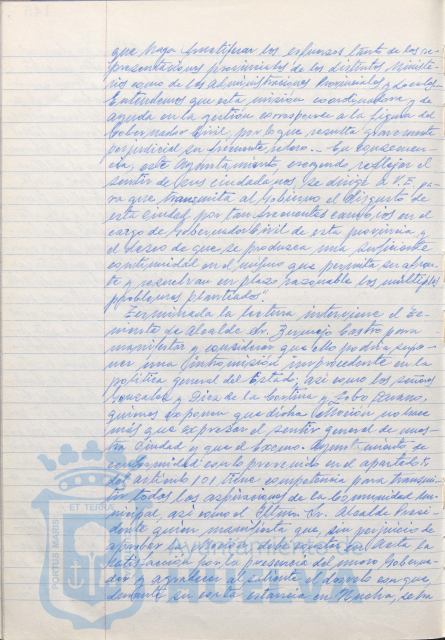 que haga fructificar los esfuerzos tanto de las re-
presentaciones provinciales de los distintos Ministe-
rios como de las administraciones Provinciales y Locales.
Entendemos que esta misión coordinadora y de
ayuda en la gestión corresponde a la figura del
Gobernador Civil, por lo que resulta gravemente
perjudicial su frecuente relevo.- En consecuen-
cia, este Ayuntamiento, creyendo reflejar el
sentir de sus ciudadanos, se dirige a V.E. pa-
ra que transmita al Gobierno el disgusto de
esta ciudad por tan frecuentes cambios en el
cargo de Gobernador Civil de esta provincia y
el deseo de que se produzca una suficiente
continuidad en el mismo que permita se afron-
te y resuelvan en plazo razonable los múltiples
problemas planteados.
Terminada la lectura interviene el Te-
niente de Alcalde Sr. Bermejo Castro para
manifestar y considerar que ello podría supo-
ner una intromisión improcedente en la
política general del Estado, así como los señores
González y Díaz de la Cortina y Lobo
quienes exponen que dicha Moción no hace
más que expresar el sentir general de nues-
tra Ciudad y que el Excmo. Ayuntamiento de
conformidad con lo prevenido en el apartado
del artículo 101 tiene competencia para
todas las aspiraciones de la Comunidad mu-
nicipal, así como el Iltmo. Sr. Alcalde Presi-
dente quien manifiesta que, sin perjuicio de
aprobar la moción, debe constar en Acta la
satisfacción por la presencia del nuevo Goberna-
dor y agradecer al saliente el desvelo con que,
durante su corta estancia en Huelva,
PORTUS MARIS ET TERRAE
HUELVA